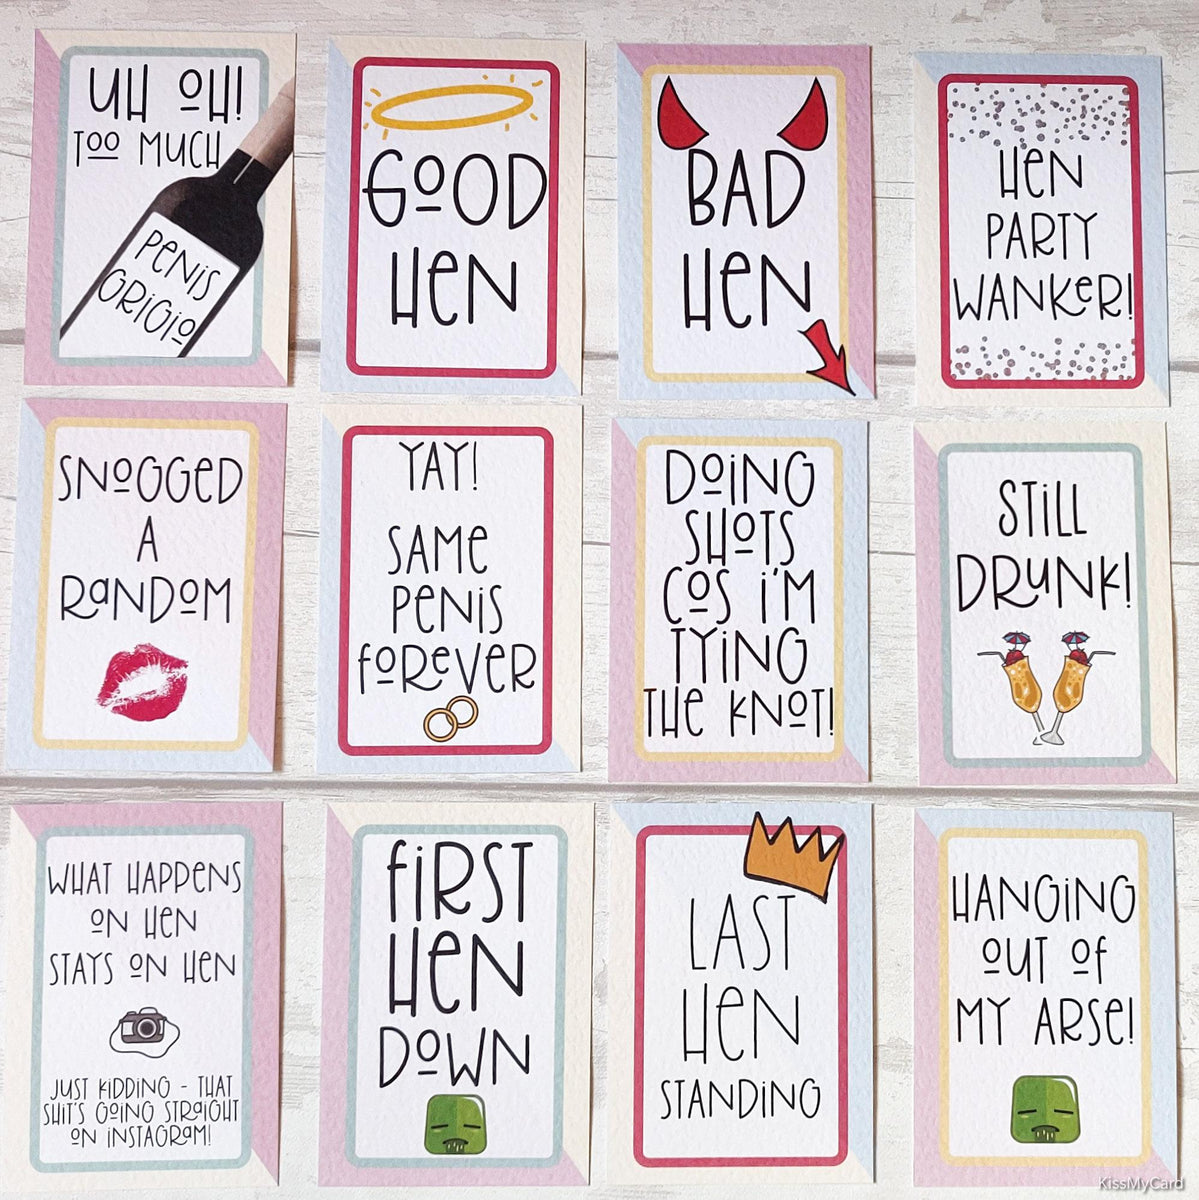 UH OH!
TOO MUCH
PENIS
GRIGIO
GOOD
HEN
BAD
HEN
HEN
PARTY
WANKER!
SNOGGED
A
RANDOM
YAY!
SAME
PENIS
FOREVER
DOING
SHOTS
COS I'M
TYING
THE KNOT!
STILL
DRUNK!
WHAT HAPPENS
ON HEN
STAYS ON HEN
JUST KIDDING - THAT
SHIT'S GOING STRAIGHT
ON INSTAGRAM!
FIRST
HEN
DOWN
LAST
HEN
STANDING
HANGING
OUT OF
MY ARSE!
KissMyCard